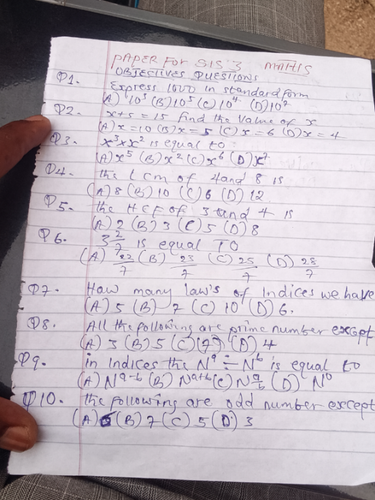 PAPER FOR SIS 3 MATHS
OBJECTIVES QUESTIONS
Q1. Express 1000 in standard form
(A) 10³ (B) 10⁵ (C) 10⁴ (D) 10²
Q2. x+5=15 find the value of x
(A) x=10 (B) x=5 (C) x=6 (D) x=4
Q3. x³×x² is equal to
(A) x⁵ (B) x² (C) x⁶ (D)
Q4. the LCM of 4 and 8 is
(A) 8 (B) 10 (C) 6 (D) 12
Q5. the HCF of 3 and 4 is
(A) 2 (B) 3 (C) 5 (D) 8
Q6. 3 2/7 is equal to
(A) 22/7 (B) 23/7 (C) 25/7 (D) 28/7
Q7. How many law's of Indices we have
(A) 5 (B) 7 (C) 10 (D) 6.
Q8. All the following are prime number except
(A) 3 (B) 5 (C) (D) 4
Q9. in indices the Nᵃ ÷ Nᵇ is equal to
(A) Nᵃ⁻ᵇ (B) Nᵃ⁺ᵇ (C) (D)
Q10. the following are odd number except
(A) (B) 7 (C) 5 (D) 3